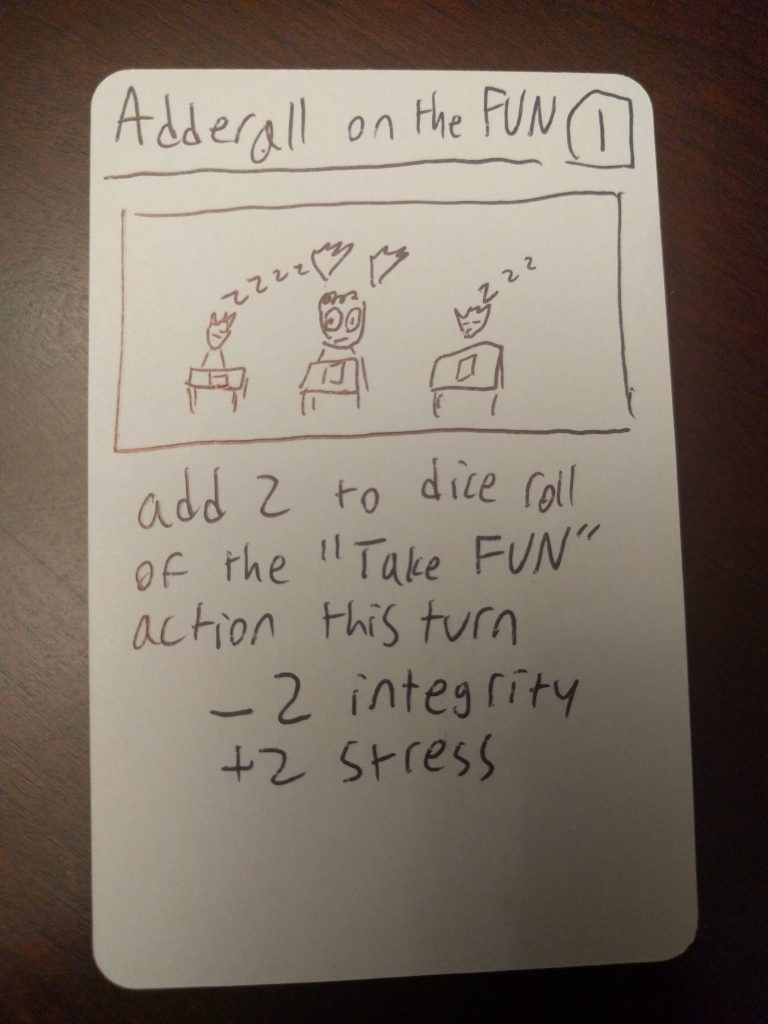 Adderall on the FUN 1
zzzz
zzz
add 2 to dice roll
of the "Take FUN"
action this turn
- 2 integrity
+2 stress